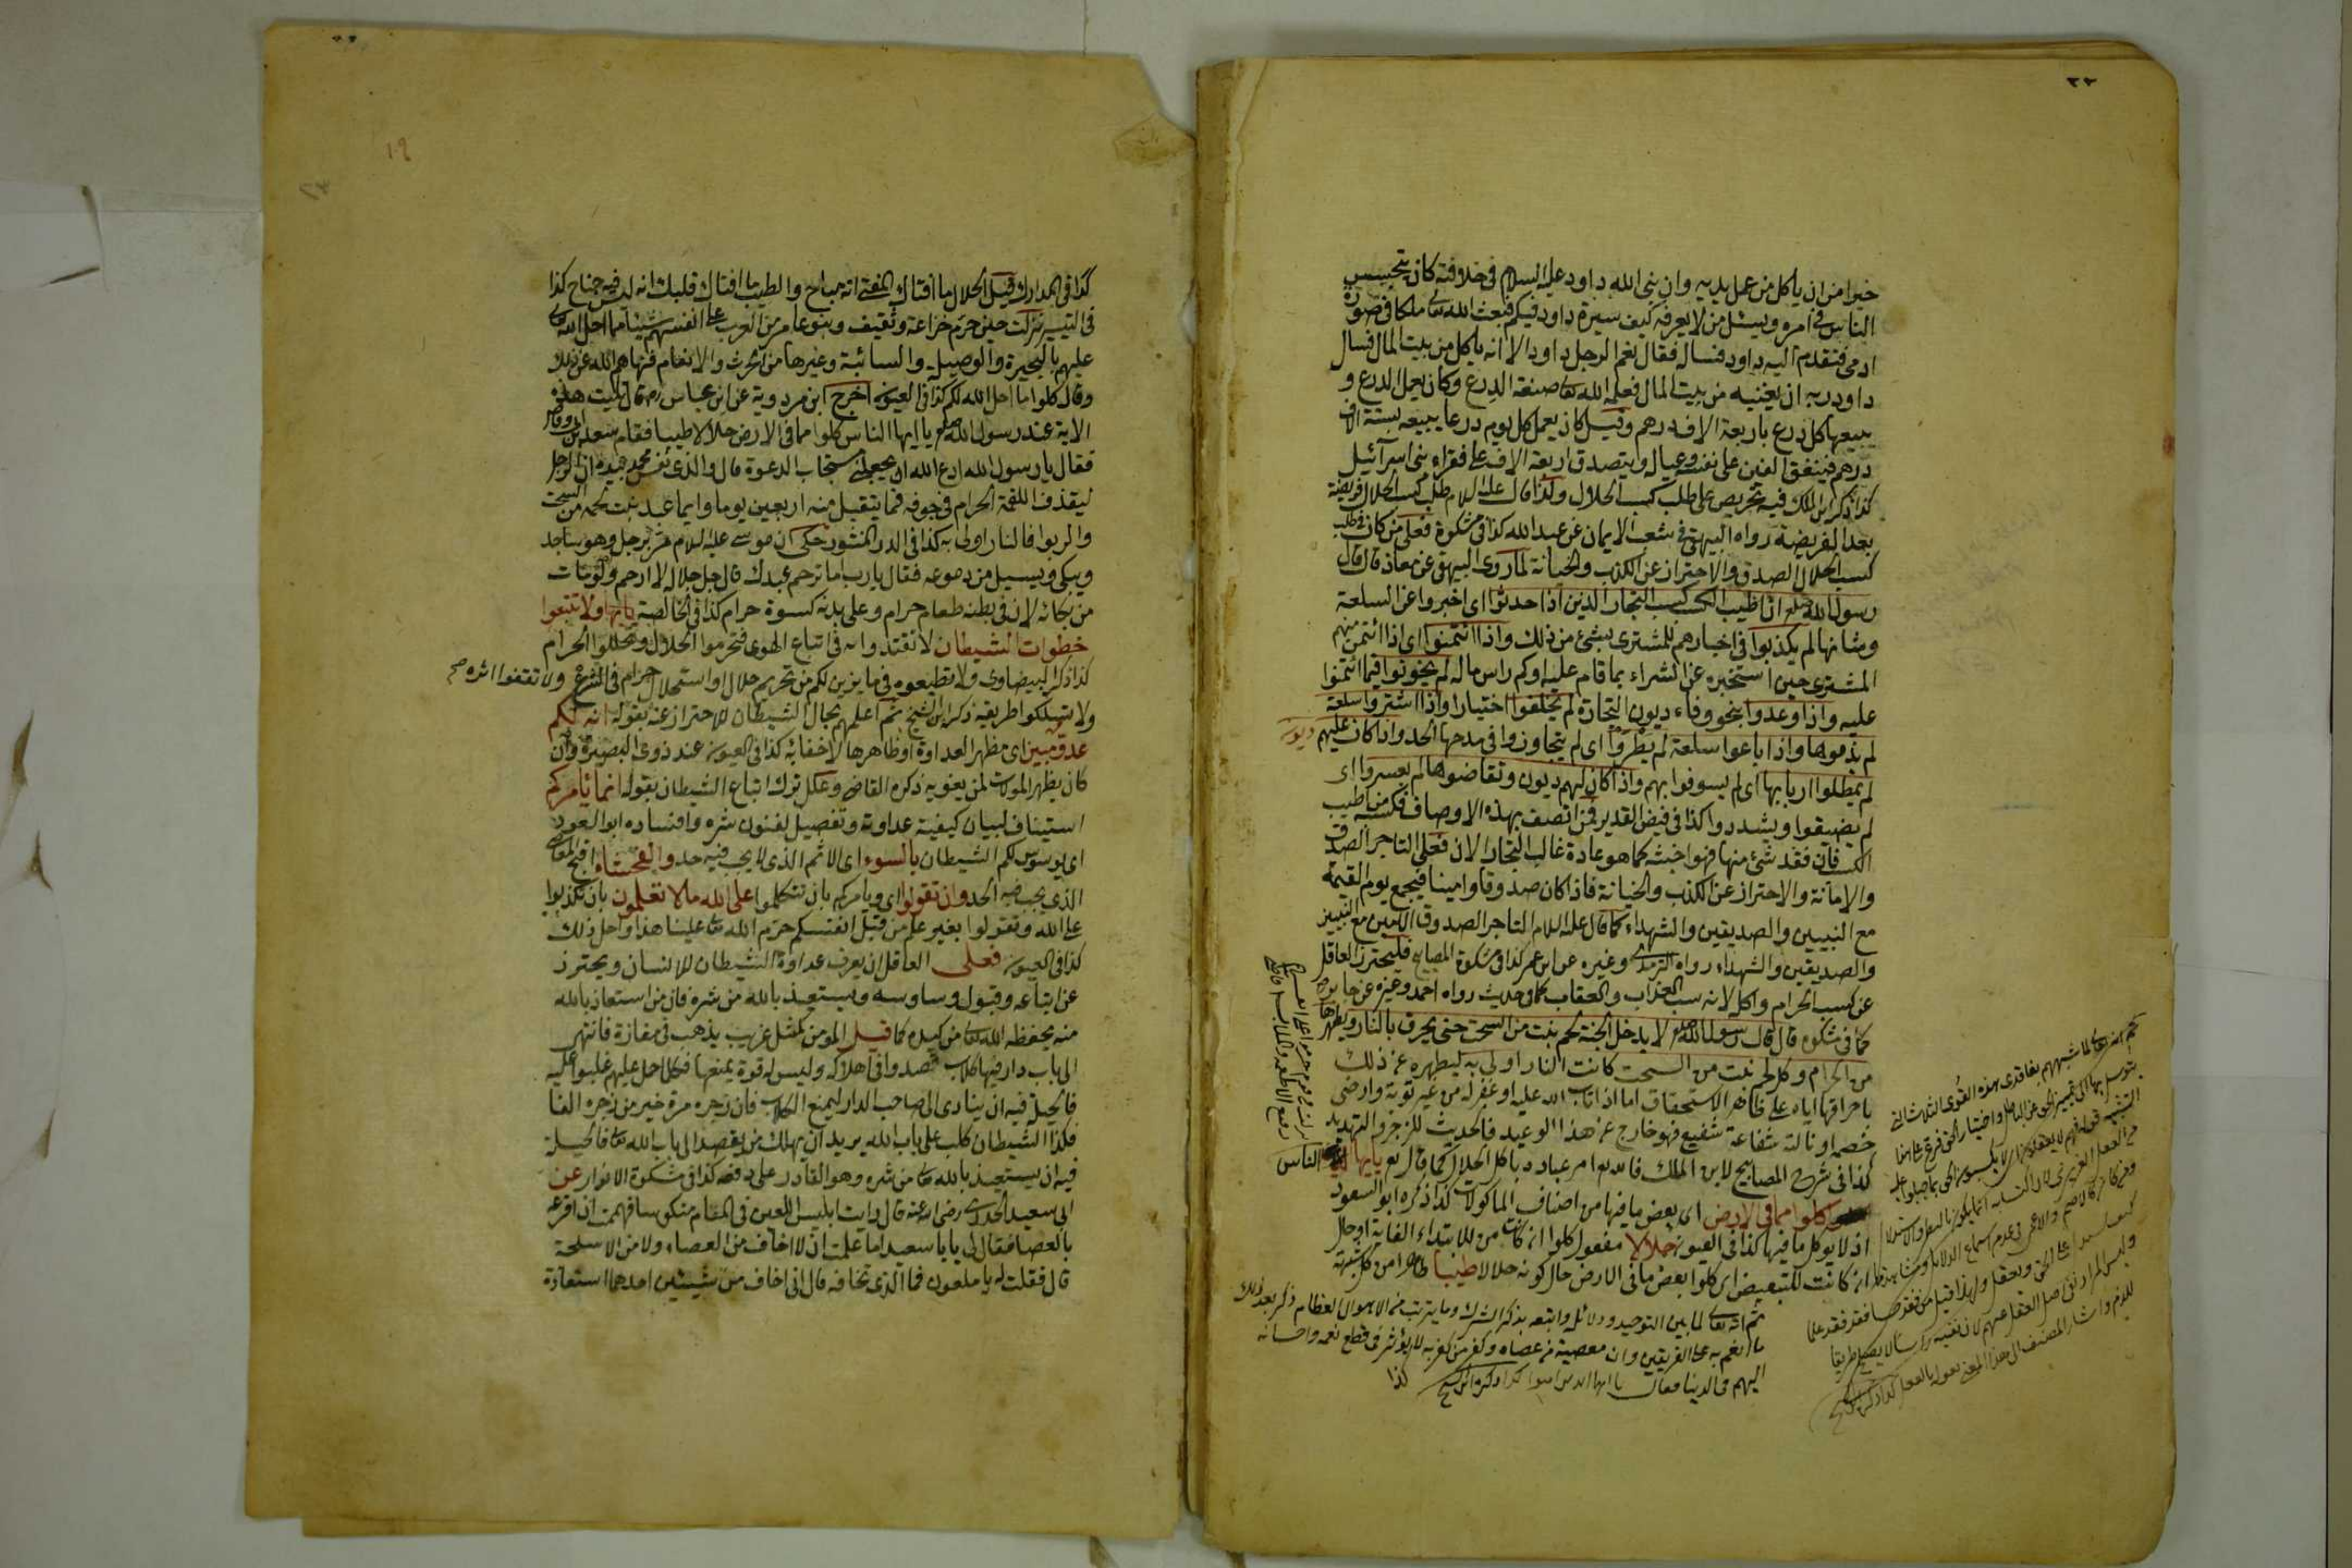 ٢٢
خيرا من ان ياكل من عمل يديه وان نبى الله داود عليه السلام فى خلافته كان يتجسس
الناس فى امره ويسئل من لا يعرفه كيف سيرة داود فيكم فبعث الله تعا ملكا فى صورة
ادمى فتقدم اليه داود فساله فقال نعم الرجل داود الا انه ياكل من بيت المال فسال
داود ربه ان يغنيه من بيت المال فعلمه الله تعا صنعة الدرع وكان يعمل الدرع و
يبيعها كل درع باربعة الاف درهم وقيل كان يعمل كل يوم درعا يبيعه بستة الاف
درهم فينفق الفين على نفسه وعياله ويتصدق اربعة الاف على فقراء بنى اسرآئيل
كذا ذكر ابن الملك فيه تحريض على طلب كسب الحلال ولذا قال عليه السلام طلب كسب الحلال فريضة
بعد الفريضة رواه البيهقى فى شعب الايمان عن عبد الله كذا فى مشكوة فعلى من كان فى طلب
كسب الحلال الصدق والاحتراز عن الكذب والخيانة لما روى البيهقى عن معاذ قال قال
رسول الله صلعم ان اطيب الكسب كسب التجار الذين اذا حدثوا اى اخبروا عن السلعة
وشانها لم يكذبوا فى اخبارهم للمشترى بشئ من ذلك واذا ائتمنوا اى اذا ائتمن منهم
المشترى حين استخبره عن الشراء بما قام عليه وكم راس ماله لم يخونوا فيما ائتمنوا
عليه واذا وعدوا بنحو وفاء ديون التجارة لم يخلفوا اختيارا واذا اشتروا سلعة
لم يذموها واذا باعوا سلعة لم يطروا اى لم يتجاوزوا فى مدحها الحد واذا كان عليهم ديون
لم يمطلوا اربابها اى لم يسوفوا بهم واذا كان لهم ديون وتقاضوها لم يعسروا اى
لم يضيقوا ويشددوا كذا فى فيض القدير فمن اتصف بهذه الاوصاف فكسبه من اطيب
الكسب فان فقد شئ منها فهو اخبثه كما هو عادة غالب التجار الان فعلى التاجر الصدق
والامانة والاحتراز عن الكذب والخيانة فاذا كان صدوقا وامينا فيجمع يوم القيمة
مع النبيين والصديقين والشهداء كما قال عليه السلام التاجر الصدوق الامين مع النبيين
والصديقين والشهداء رواه الترمذى وغيره عن ابن عمر كذا فى مشكوة المصابيح فليحترز العاقل
عن كسب الحرام واكله لانه سبب العذاب والعقاب كما فى حديث رواه احمد وغيره عن جابر
كما فى مشكوة قال قال رسول الله صلعم لا يدخل الجنة لحم نبت من السحت حتى يحرق بالنار ويطهرها
من الحرام وكل لحم نبت من السحت كانت النار اولى به ليطهره عن ذلك
باحراقها اياه على ظاهر الاستحقاق اما اذا تاب الله عليه او غفر له من غير توبة وارضى
خصمه او نالته شفاعة شفيع فهو خارج عن هذا الوعيد فالحديث للزجر والتهديد
كذا فى شرح المصابيح لابن الملك فالله تع امر عباده باكل الحلال كما قال تع يايها الناس
كلوا مما فى الارض اى بعض ما فيها من اصناف الماكولات كذا ذكره ابو السعود
اذ لا يوكل ما فيها كذا فى العيون حلالا مفعول كلوا ان كانت من للابتداء الغاية او حال
ان كانت للتبعيض اى كلوا بعض ما فى الارض حال كونه حلالا طيبا طاهرا من كل شبهة
ثم انه تعالى لما بين التوحيد ودلائله واتبعه بذكر الشرك وما يترتب من الاهوال العظام ذكر بعد ذلك
ما انعم به على الفريقين وان معصية من عصاه وكفر من كفر به لم يؤثر فى قطع نعمه واحسانه
اليهم فى الدنيا فقال يا ايها الذين امنوا كذا ذكره الشيخ
١٩
كذا فى المدارك قيل الحلال ما افتاك المفتى انه مباح والطيب ما افتاك قلبك انه ليس فيه جناح كذا
فى التيسير نزلت حين حرم خزاعة وثقيف وبنو عامر من العرب على انفسهم شيئا مما احل الله تعالى
عليهم بالبحيرة والوصيلة والسائبة وغيرها من الحرث والانعام فنهاهم الله عن ذلك
وقال كلوا ما احل الله لكم كذا فى العيون اخرج ابن مردوية عن ابن عباس رض قال تليت هذه
الاية عند رسول الله صلعم يا ايها الناس كلوا مما فى الارض حلالا طيبا فقام سعد ابن ابى وقاص
فقال يا رسول الله ادع الله ان يجعلنى مستجاب الدعوة قال والذى نفس محمد بيده ان الرجل
ليقذف اللقمة الحرام فى جوفه فما يتقبل منه اربعين يوما وايما عبد نبت لحمه من السحت
والربوا فالنار اولى به كذا فى الدر المنثور حكى ان موسى عليه السلام مر برجل وهو ساجد
ويبكى ويسيل من دموعه فقال يا رب اما ترحم عبدك قال جل جلاله لا ارحم ولو مات
من بكائه لان فى بطنه طعام حرام وعلى بدنه كسوة حرام كذا فى الخالصة يايها ولا تتبعوا
خطوات الشيطان لا تقتدوا به فى اتباع الهوى فتحرموا الحلال وتحللوا الحرام
كذا ذكر البيضاوى ولا تطيعوه فى ما يزين لكم من تحريم حلال او استحلال حرام فى الشرع ولا تقفوا اثره صح
ولا تسلكوا طريقه ذكر ابن الشيخ ثم اعلمهم بحال الشيطان للاحتراز عنه بقوله انه لكم
عدو مبين اى مظهر العداوة او ظاهرها لا خفاء به كذا فى العيون عند ذوى البصيرة وان
كان يظهر الموالات لمن يغويه ذكره القاضى وعلل ترك اتباع الشيطان بقوله انما يامركم
استيناف لبيان كيفية عداوته وتفصيل لفنون شره وافساده ابو السعود
اى يوسوس لكم الشيطان بالسوء اى الاثم الذى لا يجب فيه حد والفحشاء اقبح المعاصى
الذى يجب فيه الحد وان تقولوا اى ويامركم بان تتكلموا على الله مالا تعلمون بان تكذبوا
على الله وتقولوا بغير علم من قبل انفسكم حرم الله تعا علينا هذا واحل ذلك
كذا فى العيون فعلى العاقل ان يعرف عداوة الشيطان للانسان ويحترز
عن اتباعه وقبول وساوسه ويستعيذ بالله من شره فان من استعاذ بالله
منه يحفظه الله تعا من كيده كما قيل المومن كمثل غريب يذهب فى مفازة فانتهى
الى باب دار فيها كلاب قصدوا فى اهلاكه وليس له قوة يمنعها فكلما حمل عليهم غلبوا عليه
فالحيلة فيه ان ينادى الى صاحب الدار ليمنع الكلاب فان زجره مرة خير من زجره الفا
فكذا الشيطان كلب على باب الله يريد ان يهلك من يقصد الى باب الله تعا فالحيلة
فيه ان يستعيذ بالله تعا من شره وهو القادر على دفعه كذا فى مشكوة الانوار عن
ابى سعيد الخدرى رضى الله عنه قال رايت ابليس اللعين فى المقام منكوسا فهممت ان اقرعه
بالعصا فقال لى يا با سعيد اما علمت ان لا اخاف من العصاء ولا من الاسلحة
قال فقلت له يا ملعون فما الذى تخافه قال انى اخاف من شيئين احدهما استعاذة